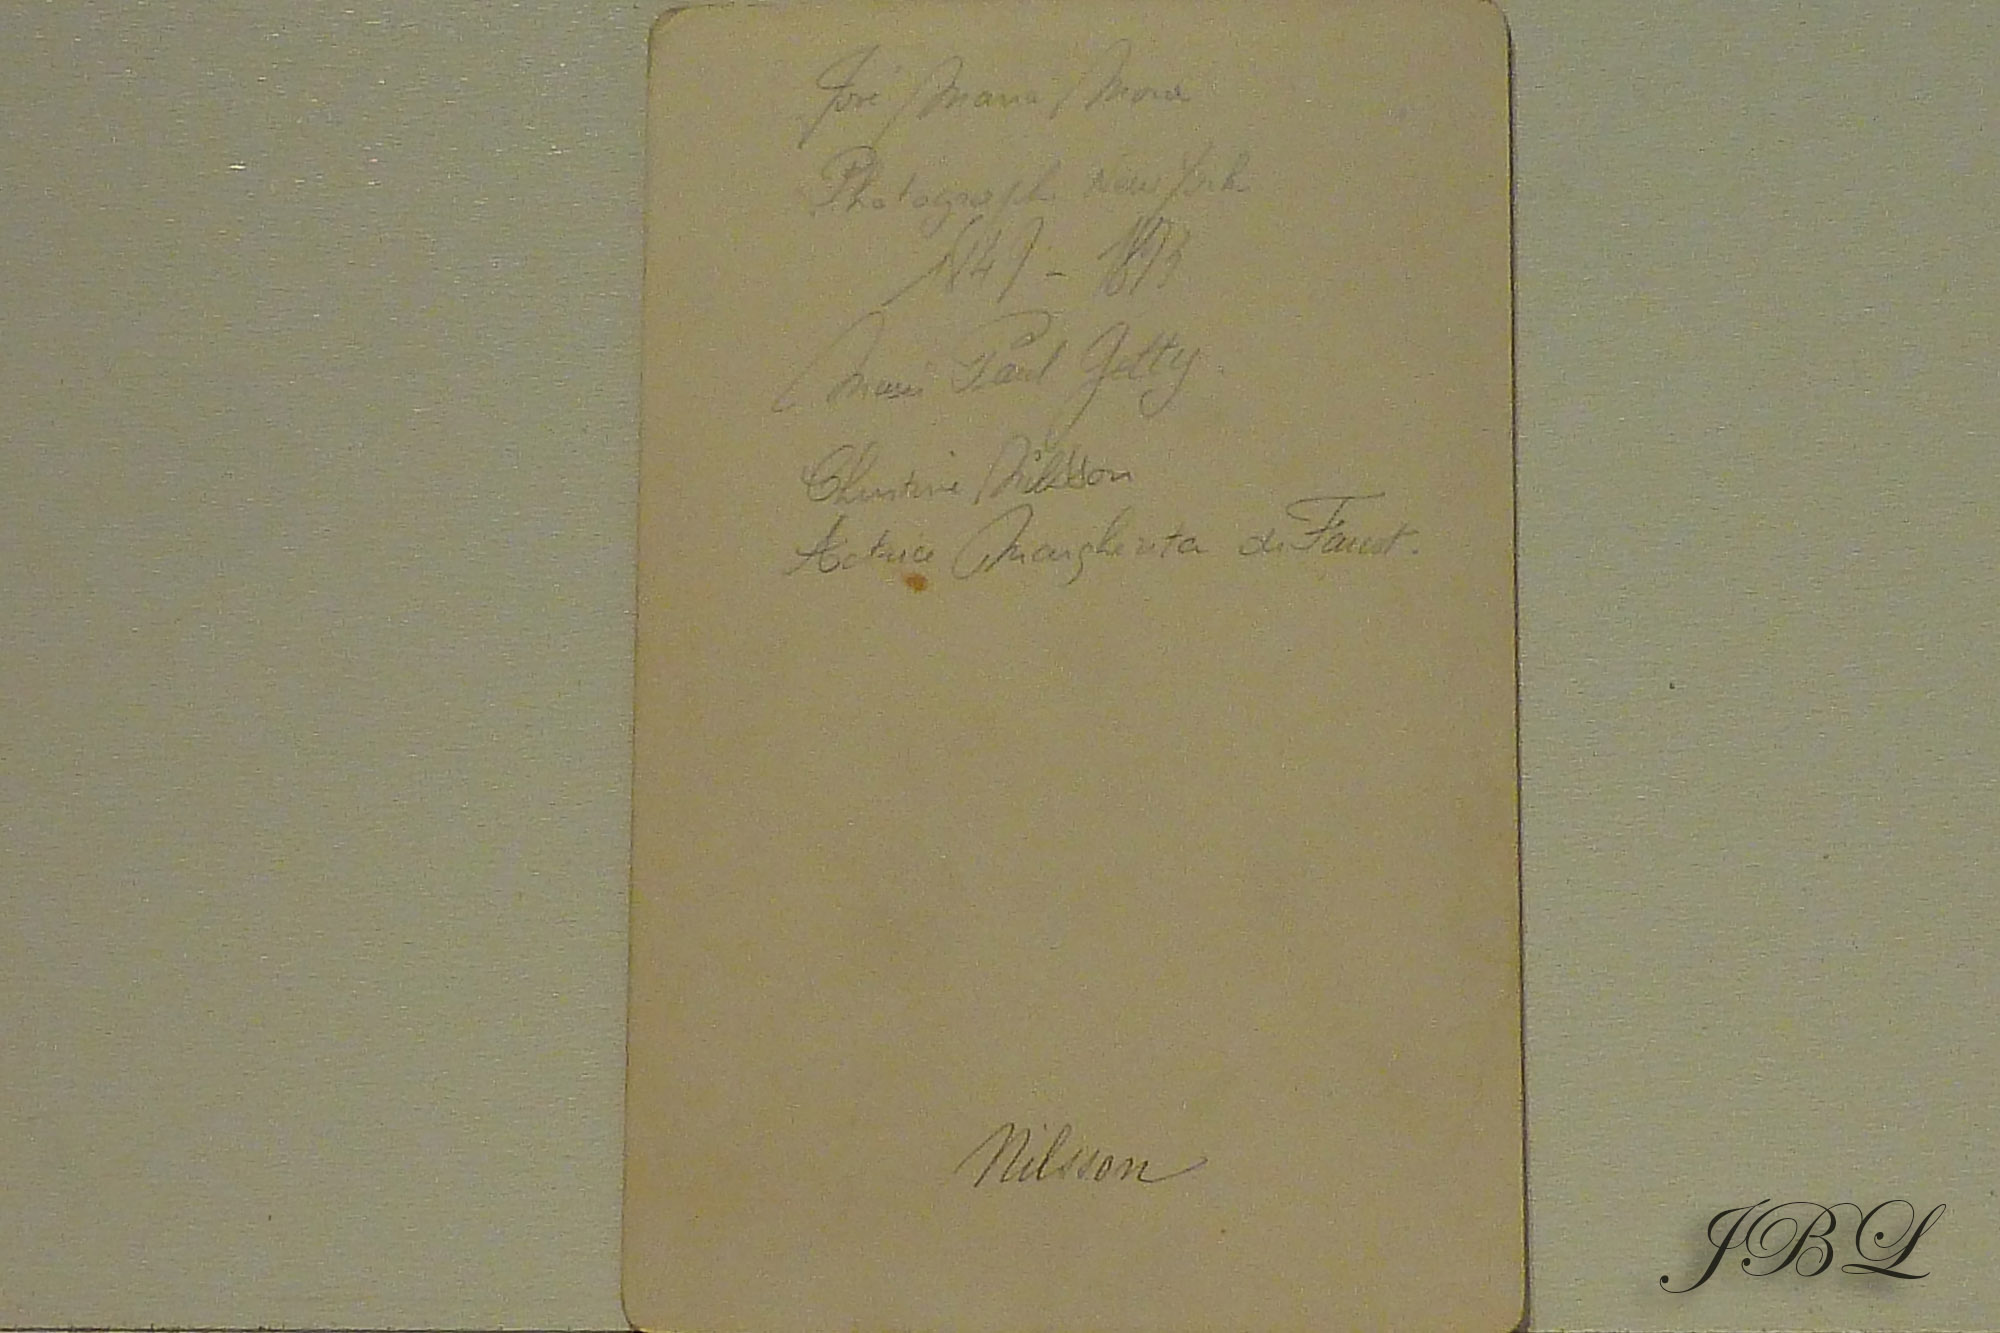 José Maria Mora
Photograph New York
1847 - 1893
Musé Paul Getty.
Christine Nilsson
Actrice Margherita di Faust.
Nilsson
JBL